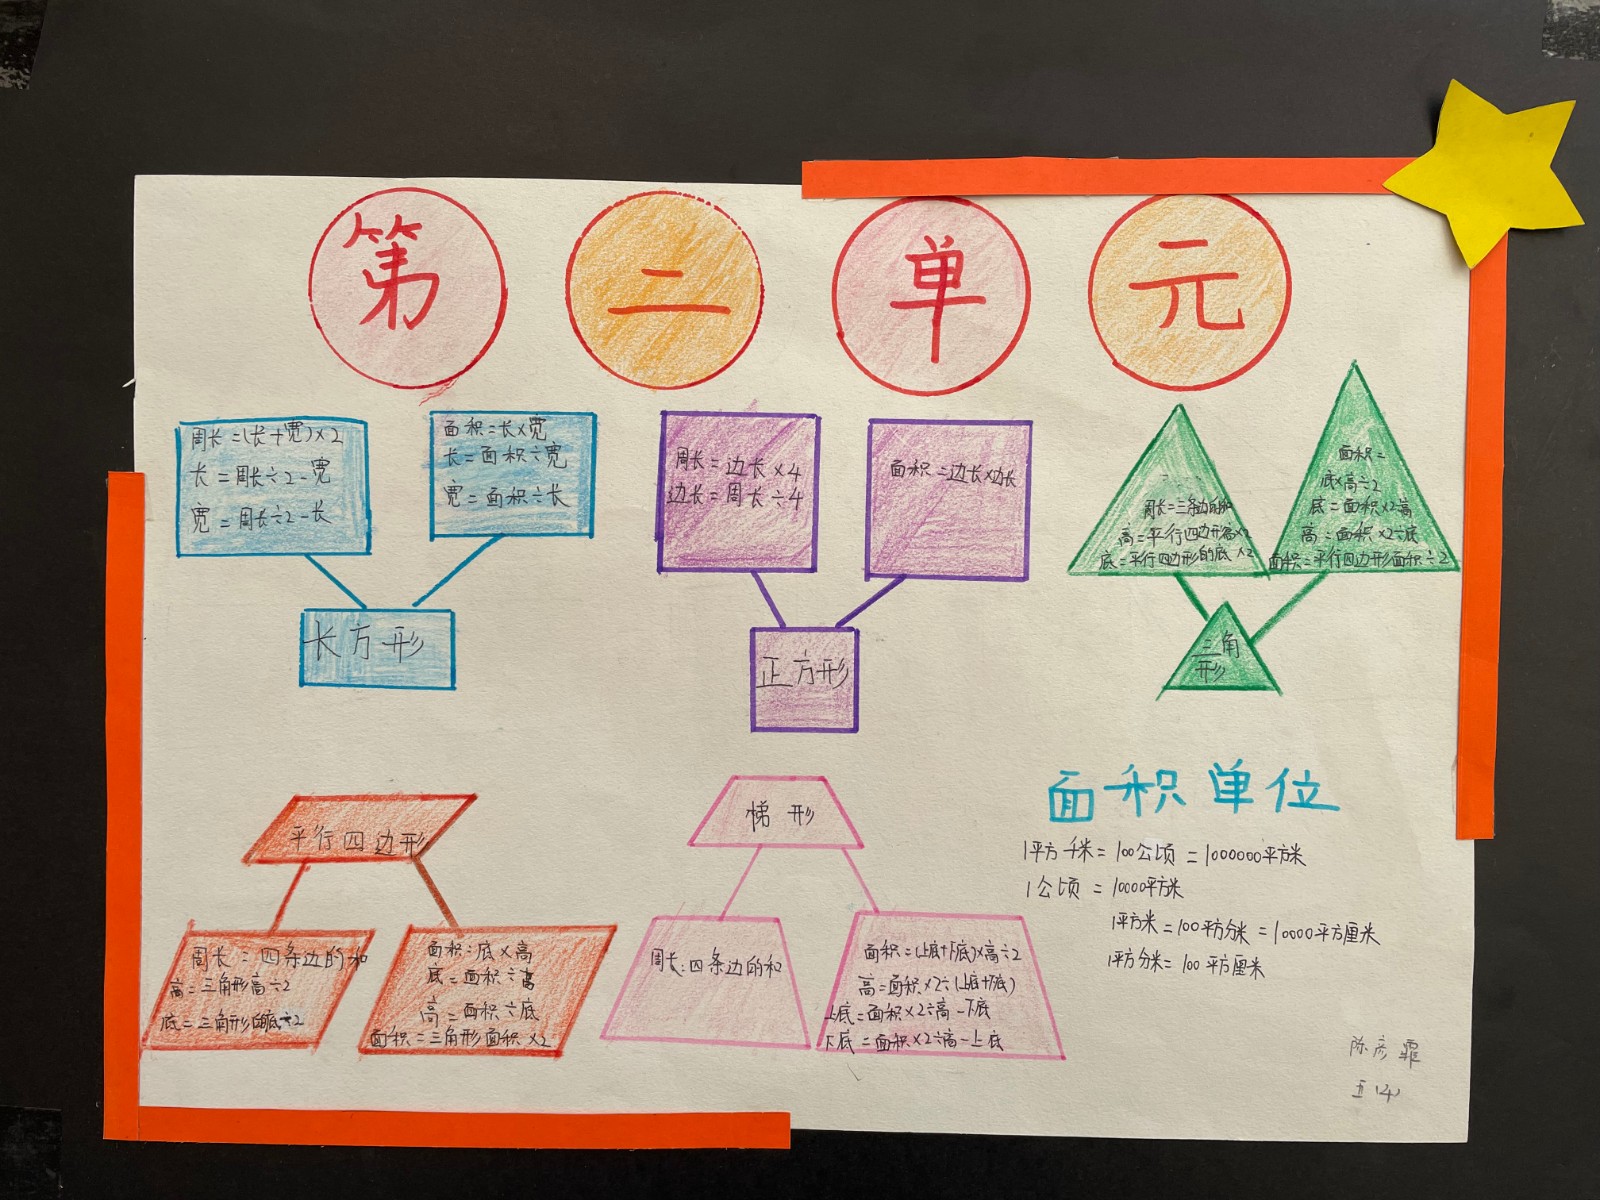 第二单元
周长=(长+宽)×2
长=周长÷2-宽
宽=周长÷2-长
面积=长×宽
长=面积÷宽
宽=面积÷长
长方形
周长=边长×4
边长=周长÷4
面积=边长×边长
正方形
周长=三条边的和
高=平行四边形高×2
底=平行四边形的底×2
面积=
底×高÷2
底=面积×2÷高
高=面积×2÷底
面积=平行四边形面积÷2
三角
形
平行四边形
周长=四条边的和
高=三角形高÷2
底=三角形的底÷2
面积=底×高
底=面积÷高
高=面积÷底
面积=三角形面积×2
梯形
周长:四条边的和
面积=(上底+下底)×高÷2
高=面积×2÷(上底+下底)
上底=面积×2÷高-下底
下底=面积×2÷高-上底
面积单位
1平方千米=100公顷=1000000平方米
1公顷=10000平方米
1平方米=100平方分米=10000平方厘米
1平方分米=100平方厘米
陈彦霏
五(4)